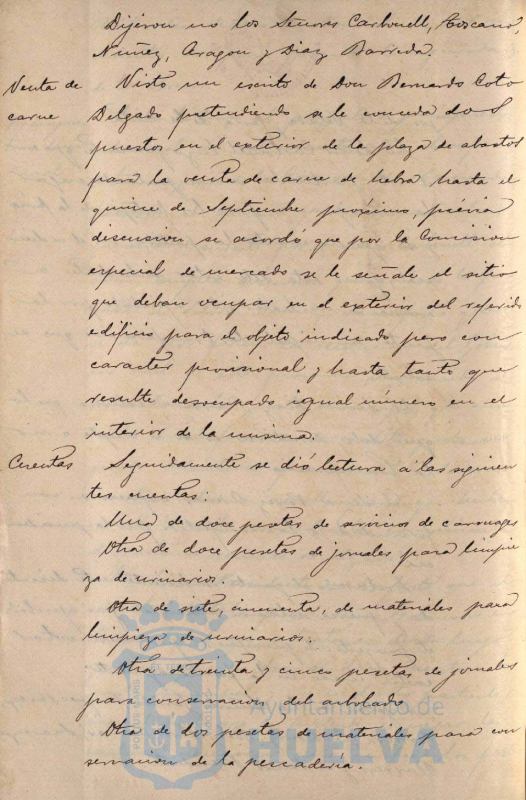 Dijeron no los Señores Carbonell, Toscano,
Nuñez, Aragon y Diaz Barreda.
Venta de carne
Visto un escrito de Don Bernardo Coto
Delgado pretendiendo se le conceda dos
puestos en el exterior de la plaza de abastos
para la venta de carne de hebra hasta el
quince de Septiembre próximo, prévia
discusion se acordó que por la Comision
especial de mercado se le señale el sitio
que deban ocupar en el exterior del referido
edificio para el objeto indicado pero con
caracter provisional y hasta tanto que
resulte desocupado igual número en el
interior de la misma.
Cuentas
Seguidamente se dió lectura á las siguien
tes cuentas:
Una de doce pesetas de servicios de carruages
Otra de doce pesetas de jornales para limpie
za de urinarios.
Otra de siete, cincuenta, de materiales para
limpieza de urinarios.
Otra de treinta y cinco pesetas de jornales
para conservacion del arbolado
Otra de dos pesetas de materiales para con
servacion de la pescaderia.
Ayuntamiento de
HUELVA